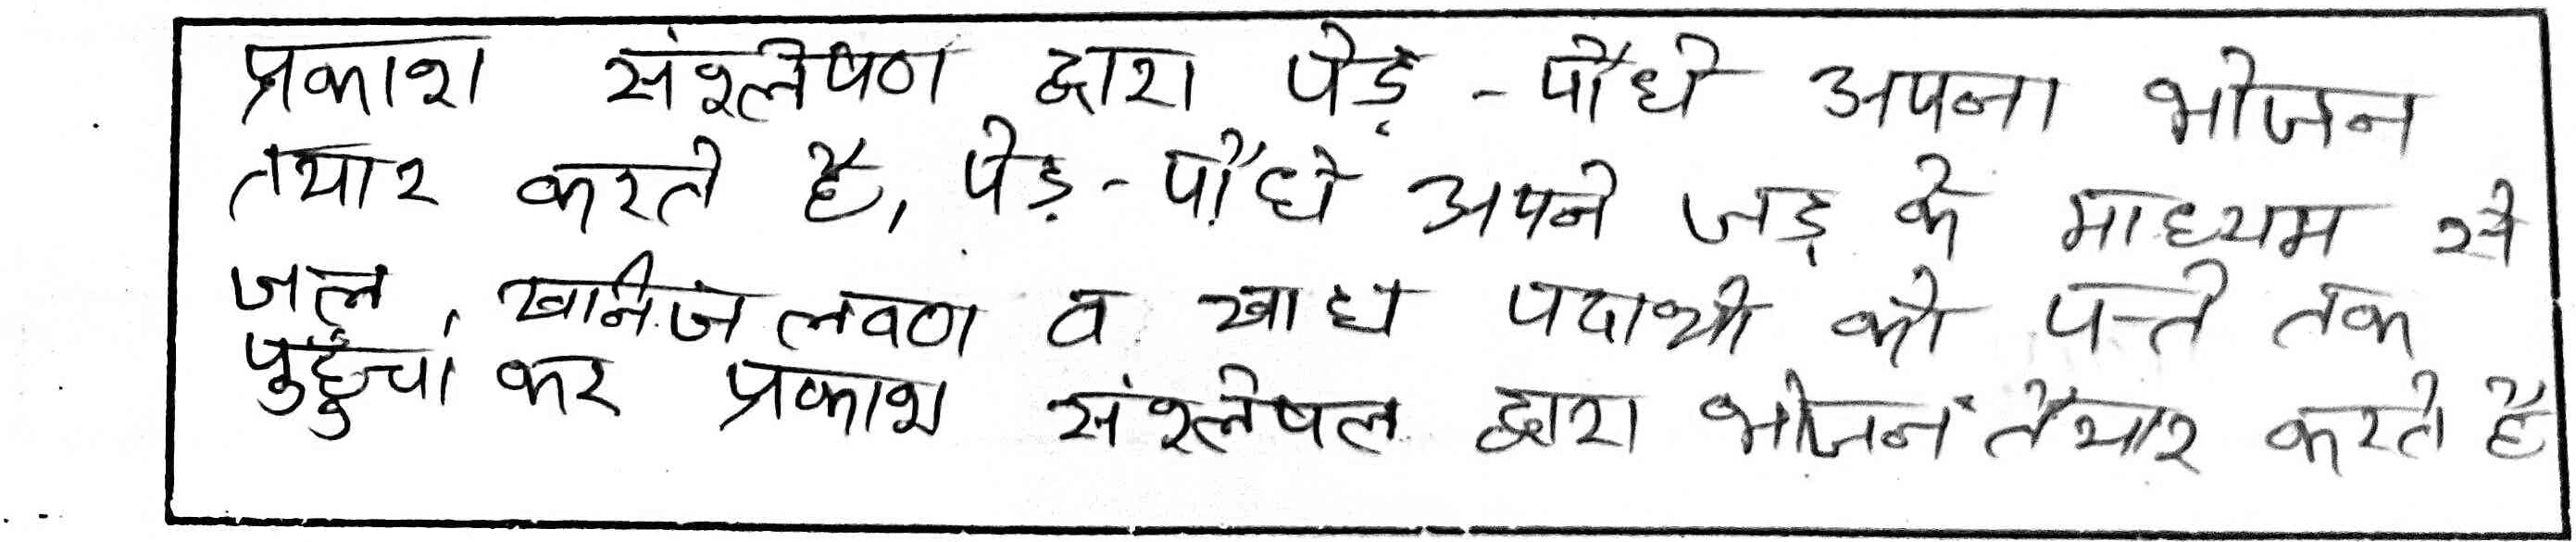 प्रकाश संश्लेषण द्वारा पेड़ -पौधे अपना भोजन
तयार करते है, पेड़-पौधे अपने जड़ के माध्यम से
जल, खनिज लवण व खाद्य पदार्थो को पत्ते तक
पुहुँचा कर प्रकाश संश्लेषल द्वारा भोजन तैयार करते है